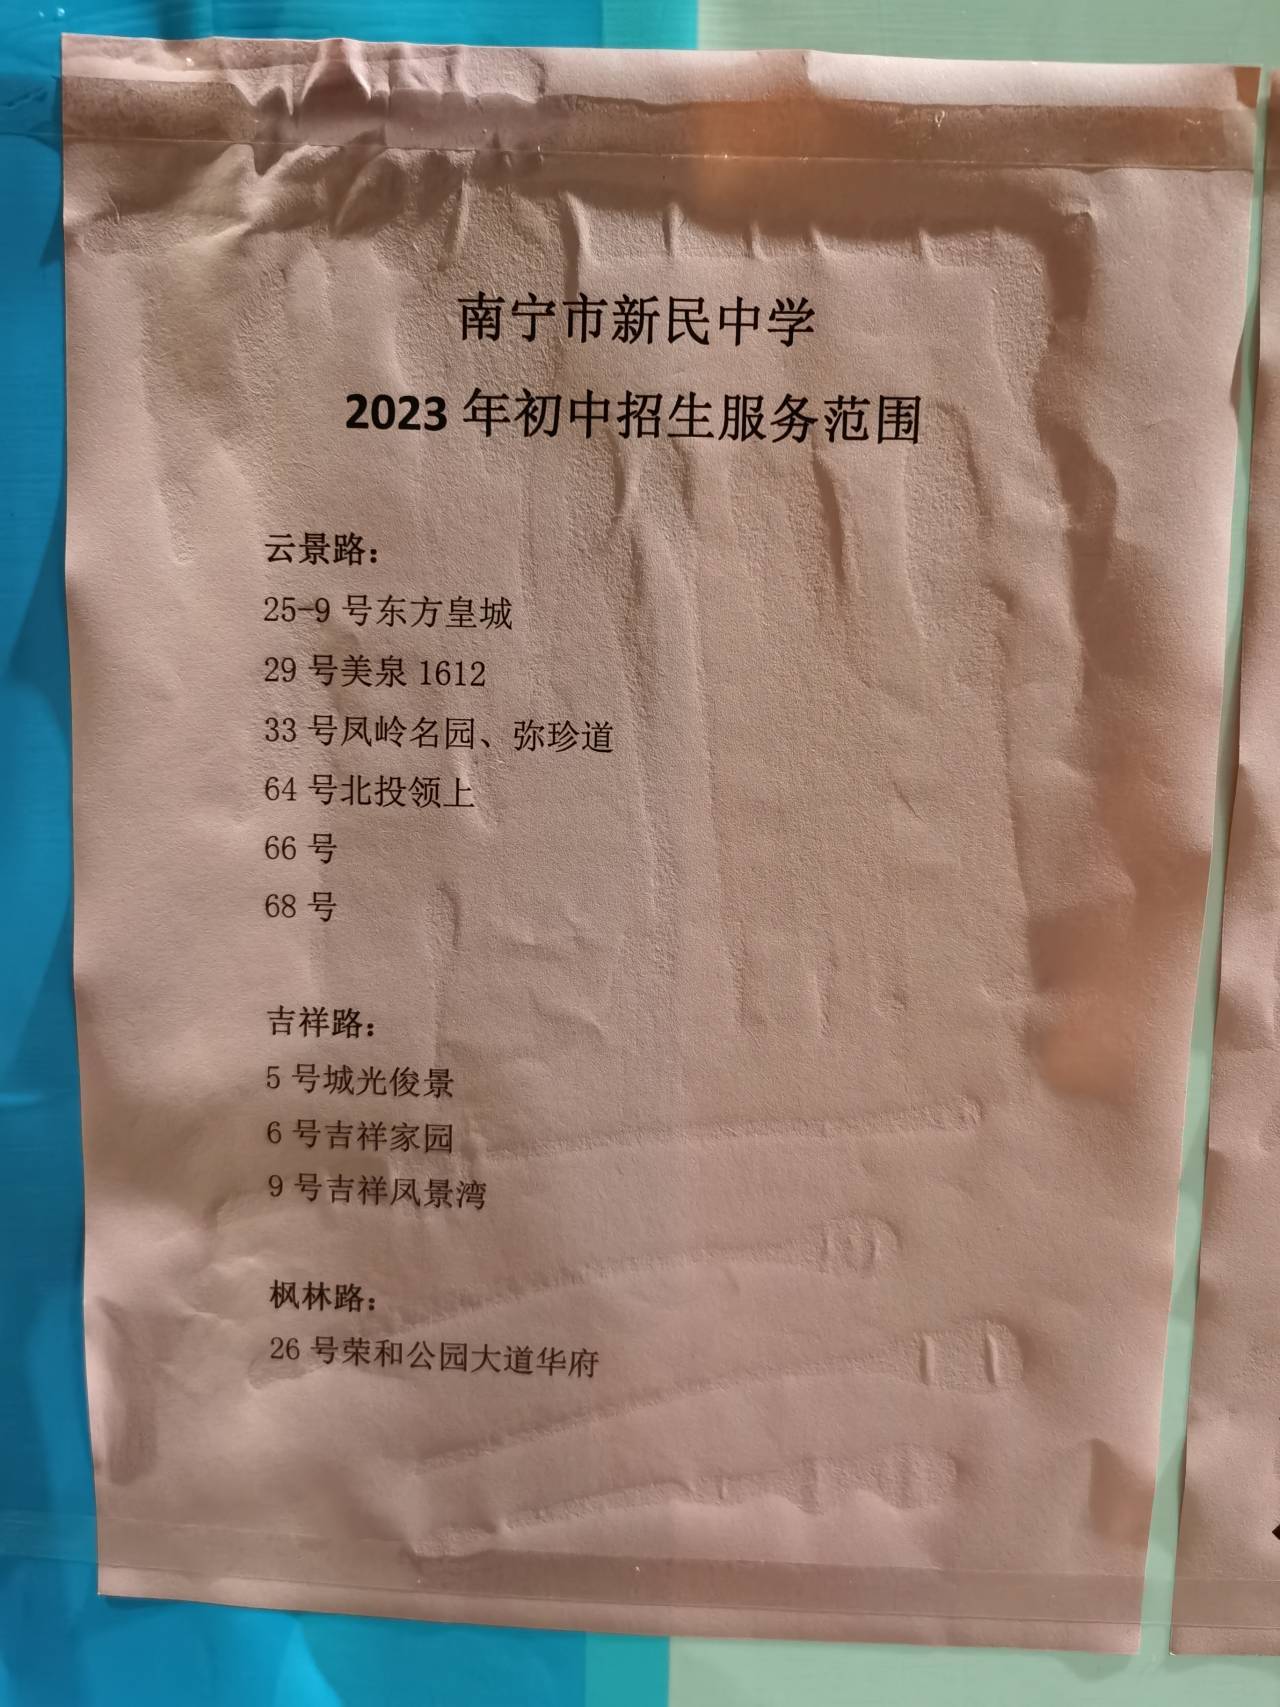 南宁市新民中学
2023 年初中招生服务范围
云景路：
25-9 号东方皇城
29 号美泉 1612
33 号凤岭名园、弥珍道
64 号北投领上
66 号
68 号
吉祥路：
5 号城光俊景
6 号吉祥家园
9 号吉祥凤景湾
枫林路：
26 号荣和公园大道华府